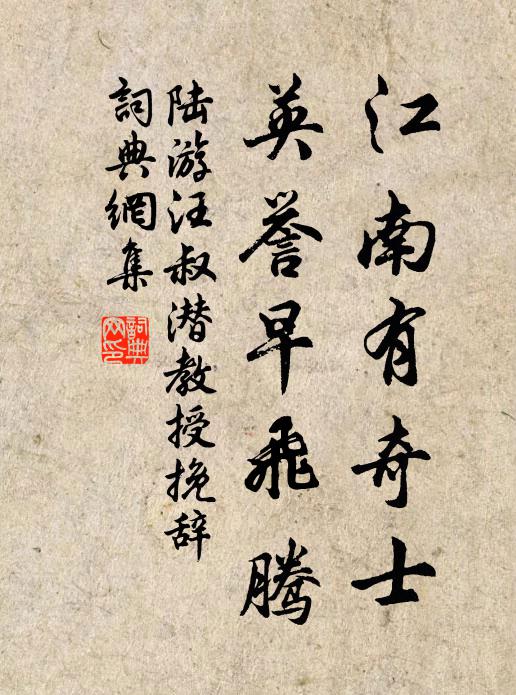 江南有奇士
英誉早飛腾
陆游汪叔潜教授挽辞
詞典網集
詞典
网印